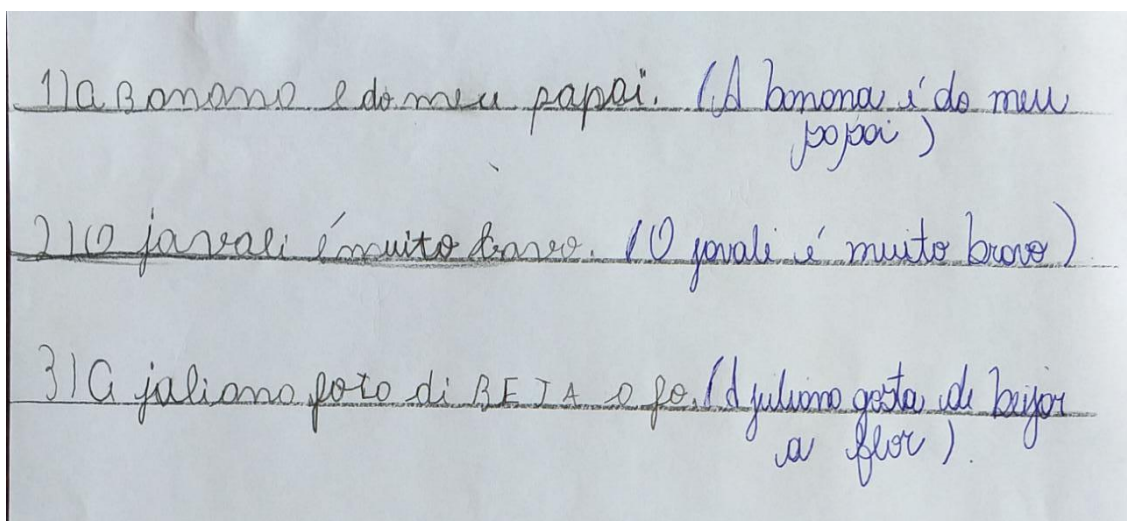 1) a Banana e do meu papai. (A banana é do meu
papai)
2) O javali é muito bavo. (O javali é muito bravo)
3) A juliana goto di BEJA a fo. (A juliana gosta de beijar
a flor).